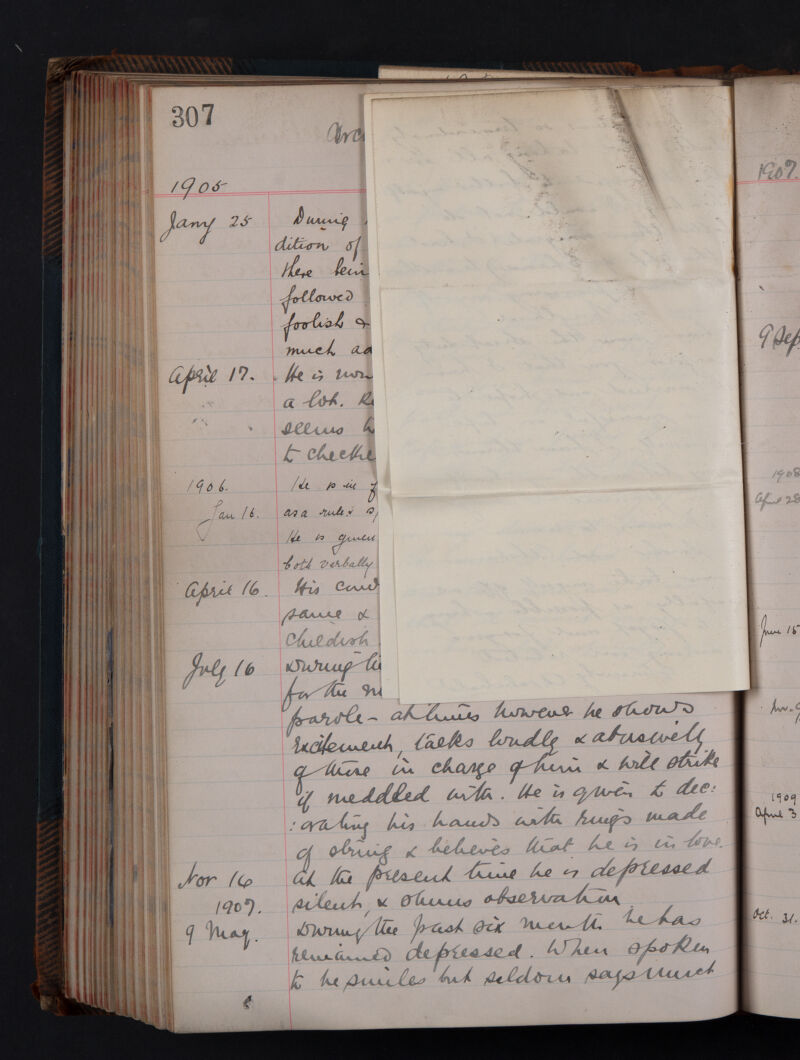 307
1905
Jany 25 During
dition of
there bein
followed
foolish &
much ad
April 17. He is now
a lot.
seems
to checke
1906. He is in
Jan 16. as a rule &
He is given
both verbally
April 16. His cond
same &
childish
July 16 During
for the
parole - at times however he shows
excitement, talks loudly & abusively
of those in charge of him & will strike
if meddled with. He is given to dec:
:orating his hands with rings made
of string & believes that he is in love.
Nov 16 At the present time he is depressed
1907. silent, & shuns observation
9 May. During the past six month he has
remained depressed. When spoken
to he smiles but seldom says much
1907.
9 Sep
1908
April 28
June 15
Nov.
1909
April 3
Oct. 31.